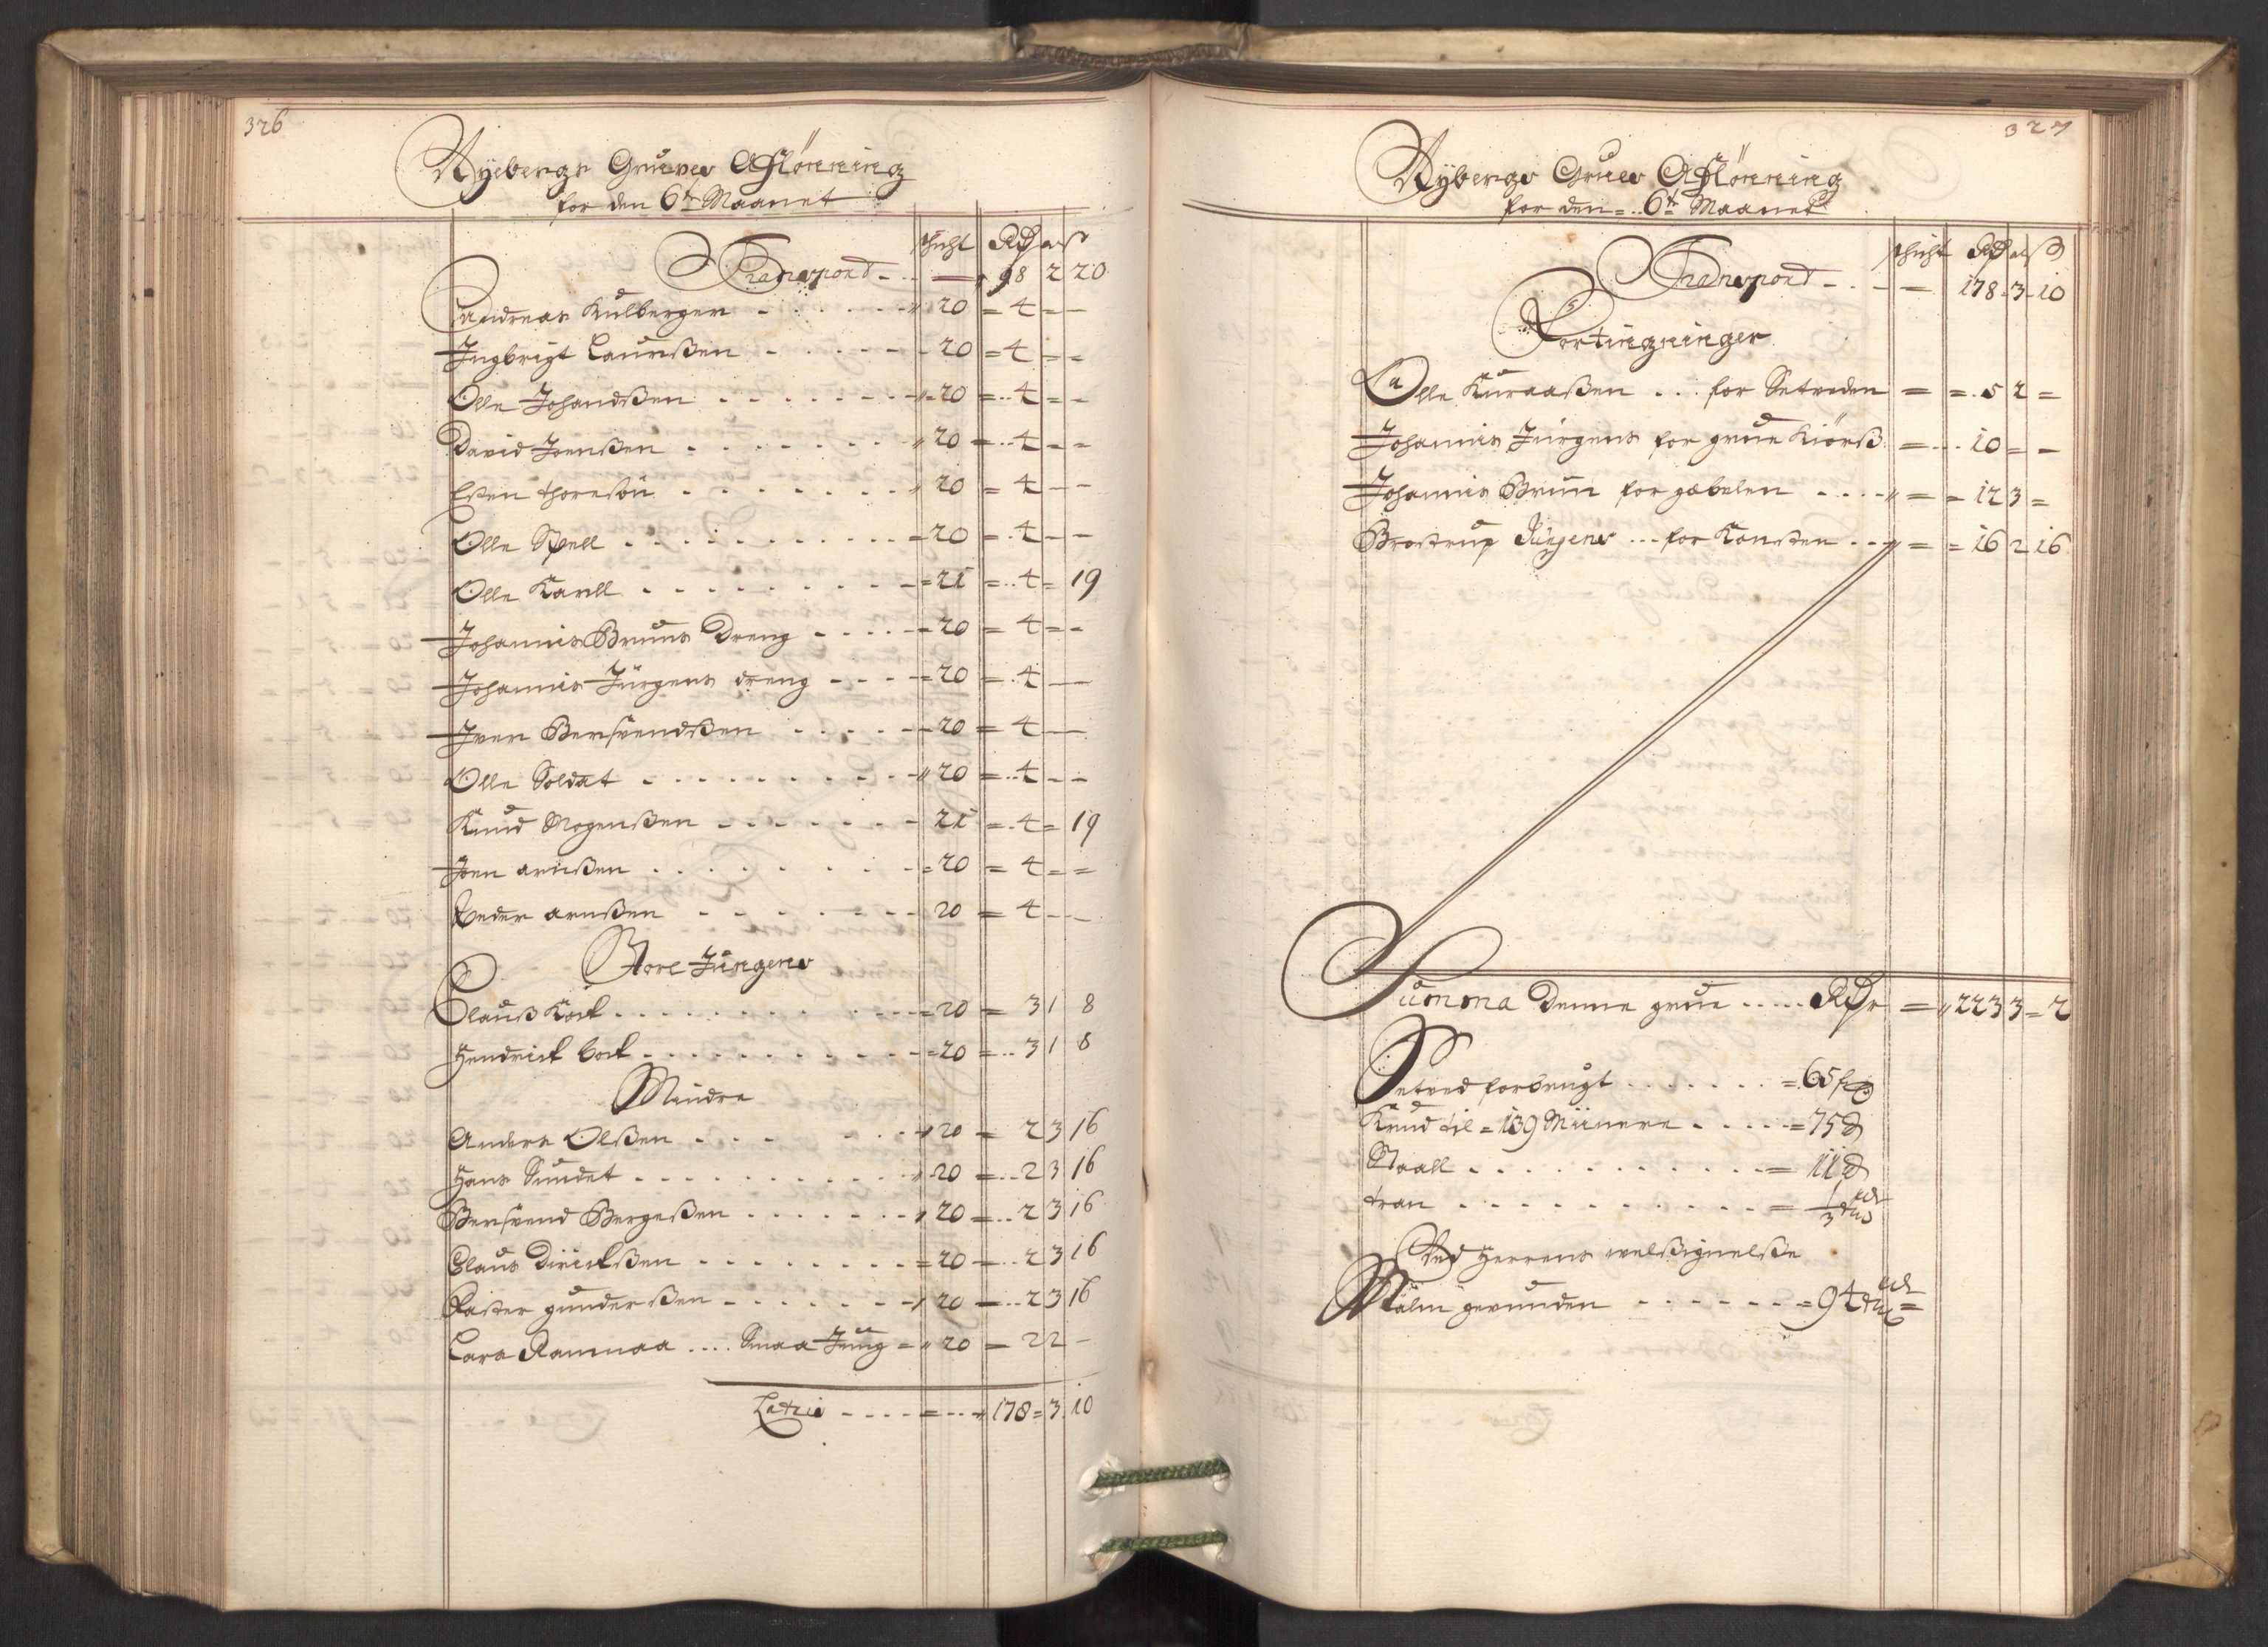 326
Nÿebergs Gruves Afflönning
for den 6te Maanet
schicht Rdr ort ß
Transport - - — 98 2 20
Andreas Kulberger - - - - - 20 = 4 = -
Ingbrigt Laurssen - - - - - 20 = 4 = =
Olle Johandssen - - - - - - 20 = 4 = -
David Joenssen - - - - - - 20 = 4 = =
Esten thoresön - - - - - - 20 = 4 - -
Olle Spell - - - - - - - 20 = 4 - -
Olle Karll - - - - - - - 21 = 4 = 19
Johannis Bruns Dreng - - - - 20 = 4 = -
Johannis Jürgens dreng - - - 20 = 4 -
Iver Bersvendssen - - - - - 20 = 4 -
Olle Soldat - - - - - - - 20 = 4 - -
Knud Mogenssen - - - - - - 21 = 4 = 19
Joen arnssen - - - - - - 20 = 4 - =
Peder arnssen - - - - - - 20 = 4 - -
Store Jungens
Clauss Kock - - - - - - - 20 = 3 1 8
Hendrick Cock - - - - - - 20 = 3 1 8
Mindre
Anders Olssen - - - - - - 20 = 2 3 16
Hans Sundet - - - - - - 20 = 2 3 16
Bersvend Bergessen - - - - - 20 = 2 3 16
Claus Dirickssen - - - - - - 20 = 2 3 16
Paster gunderssen - - - - - 20 = 2 3 16
Lars Rammaa .... Smaa Jung = 20 = 2 2 -
Latris - - - - 178 = 3 10
327
Nÿbergs Grues Afflönning
for den 6te Maanet
schicht Rdr ort ß
Transport - - — 178 - 3 - 10
Fortingninger
Olle Kuraassen ... for Setveden = = 5 2 =
Johannis Jürgens for grue Kiörss = 10 = -
Johannis Brun for gebelen - - - - = = 12 3 =
Brostrup Jürgens ... for Konsten - - = = 16 2 16
Summa Denne grue ..... Rdr = 223 3 = 2
Setved forbrugt - - - - - = 65 f
Krud til = 139 Miinere - - - - = 75 ℔
Staall - - - - - - - - = 11 ℔
tran - - - - - - - - = 1/3 tde
Ved Herrens welssignelsse
Malm gevunden - - - - - - = 94